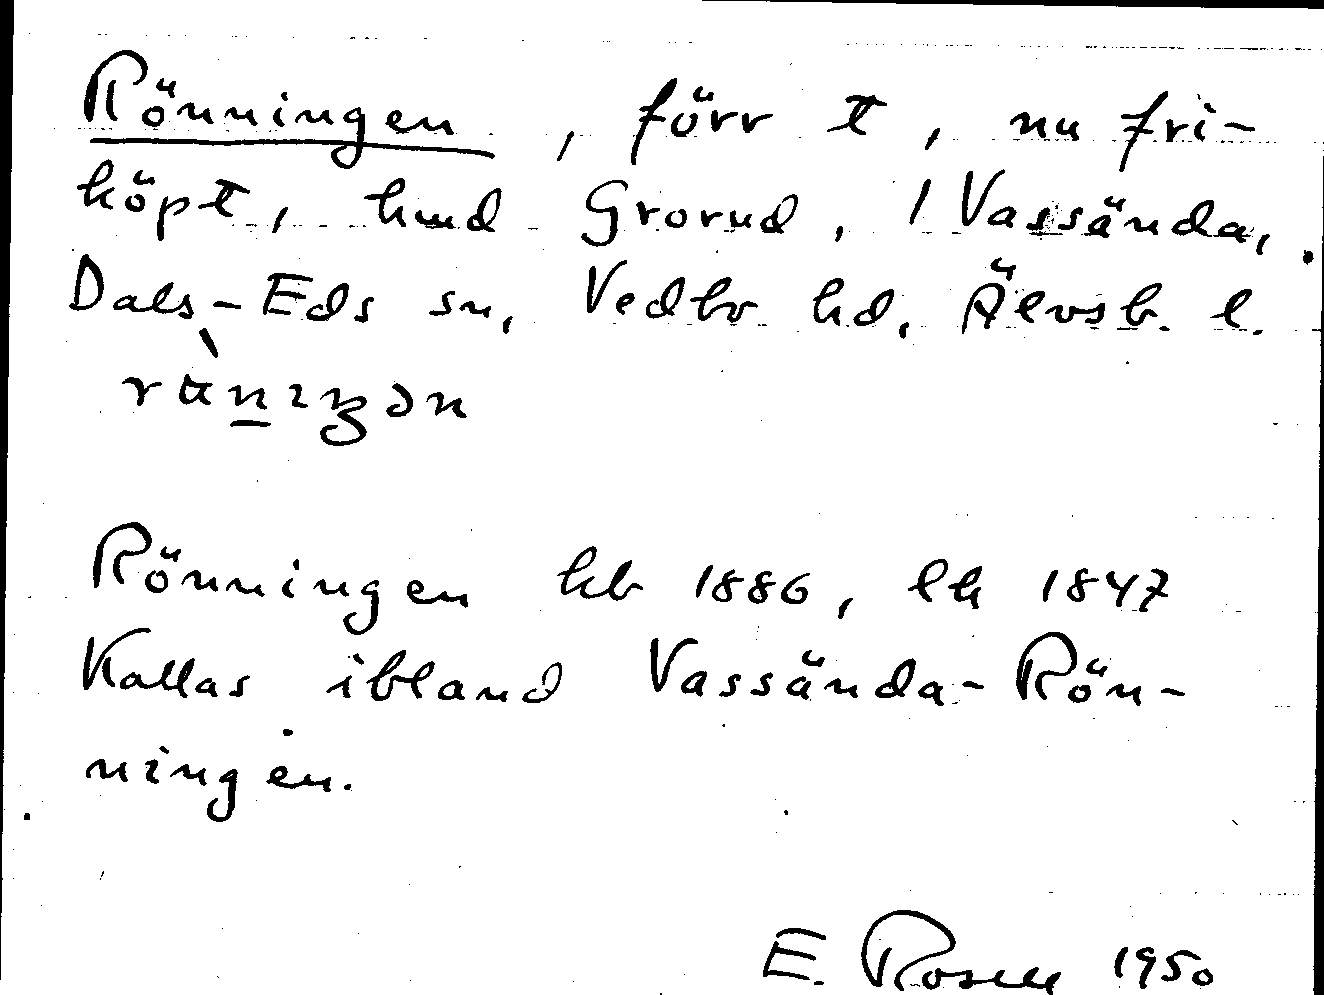 Rönningen, förr t, nu fri-
köpt, hmd Grorud, 1 Vassända,
Dals-Eds sn, Vedbo hd, Älvsb. l.
Rönningen hb 1886, lh 1847
Kallas ibland Vassända-Rön-
ningen.
E. Rosell 1950